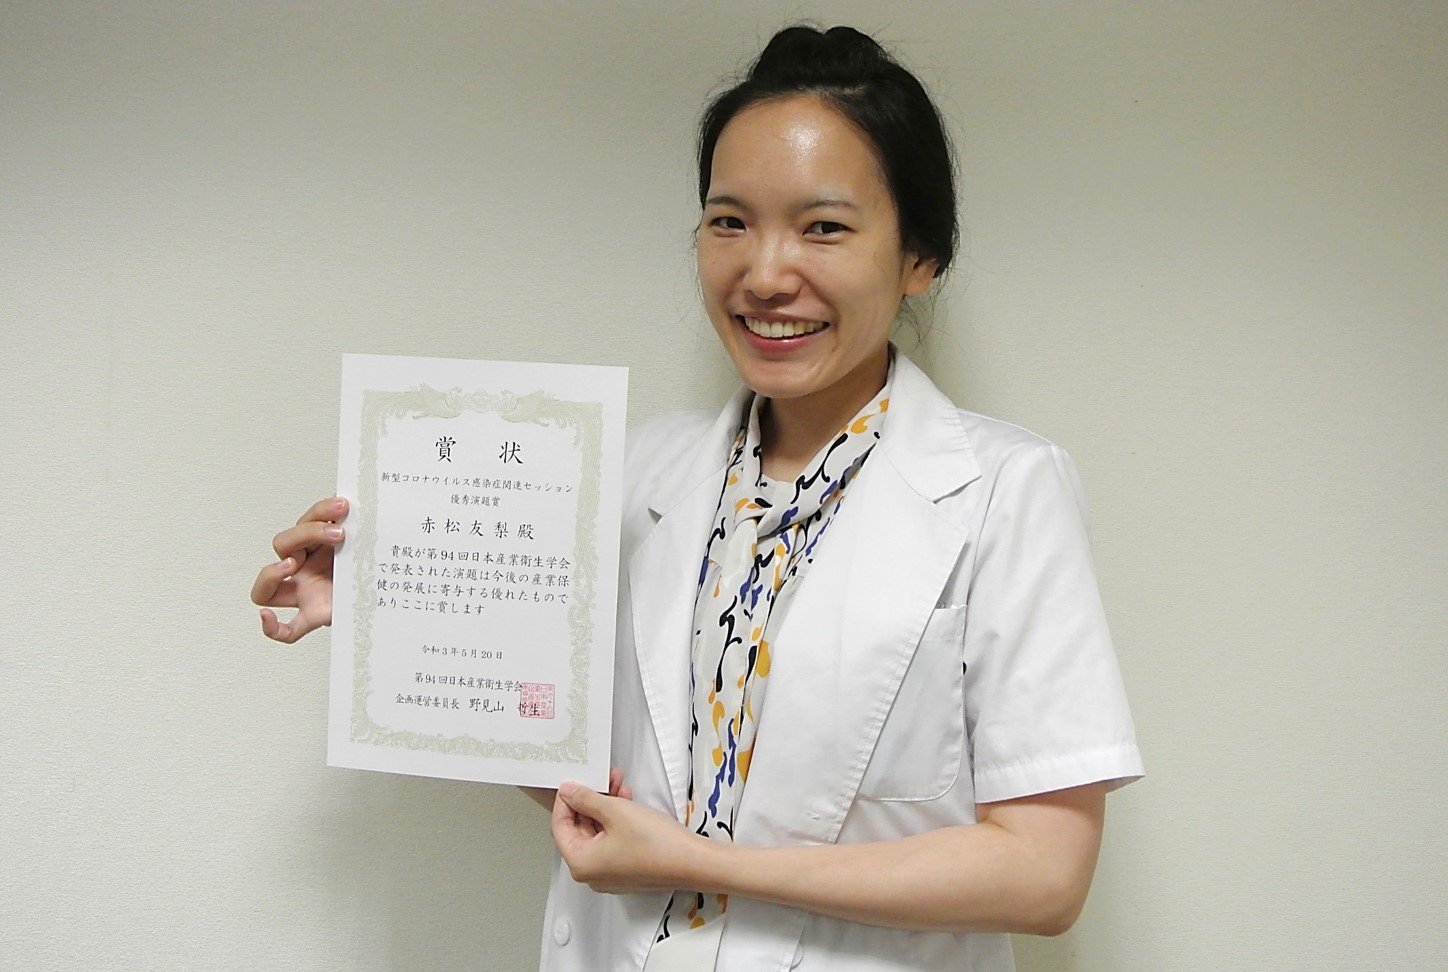 賞 状
新型コロナウイルス感染症関連セッション
優秀演題賞
赤松友梨殿
貴殿が第94回日本産業衛生学会
で発表された演題は今後の産業保
健の発展に寄与する優れたもので
ありここに賞します
令和3年5月20日
第94回日本産業衛生学会
企画運営委員長 野見山 哲生